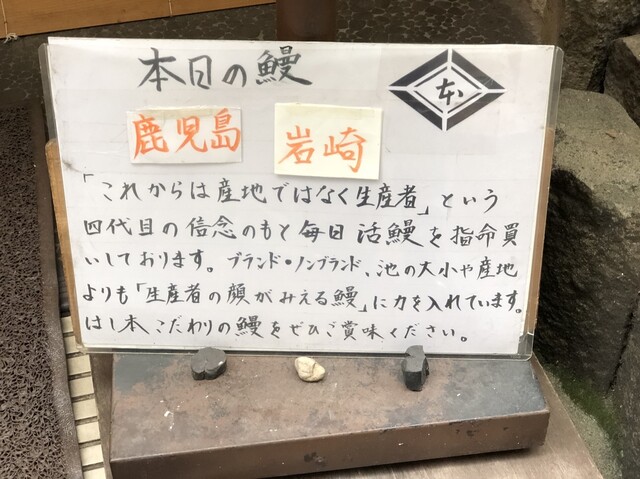 本日の鰻
本
鹿児島 岩崎
「これからは産地ではなく生産者」という
四代目の信念のもと毎日 活鰻を指命買
いしております。ブランド・ノンブランド、池の大小や産地
よりも「生産者の顔がみえる鰻」に力を入れています。
はし本こだわりの鰻をぜひご賞味ください。